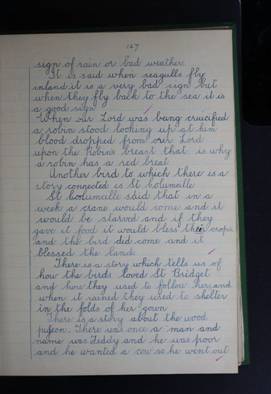 127
sign of rain or bad weather.
It is said when seagulls fly
inland it is a very bad sign but
when they fly back to the sea it is
a good sign.
When our Lord was being crucified
a robin stood looking up at him
blood dropped from our Lord
upon the robins breast that is why
a robin has a red breast.
Another bird to which there is a
story connected is St Columcille
St Columcille said that in a
week a crane would come and it
would be starved and if they
gave it food it would bless their crops
and the bird did come and it
blessed the land.
There is a story which tells us of
how the birds loved St Bridget
and how they used to follow her and
when it rained they used to shelter
in the folds of her gown
There is a story about the wood
pigeon. There was once a man and
name was Teddy and he was poor
and he wanted a cow so he went out